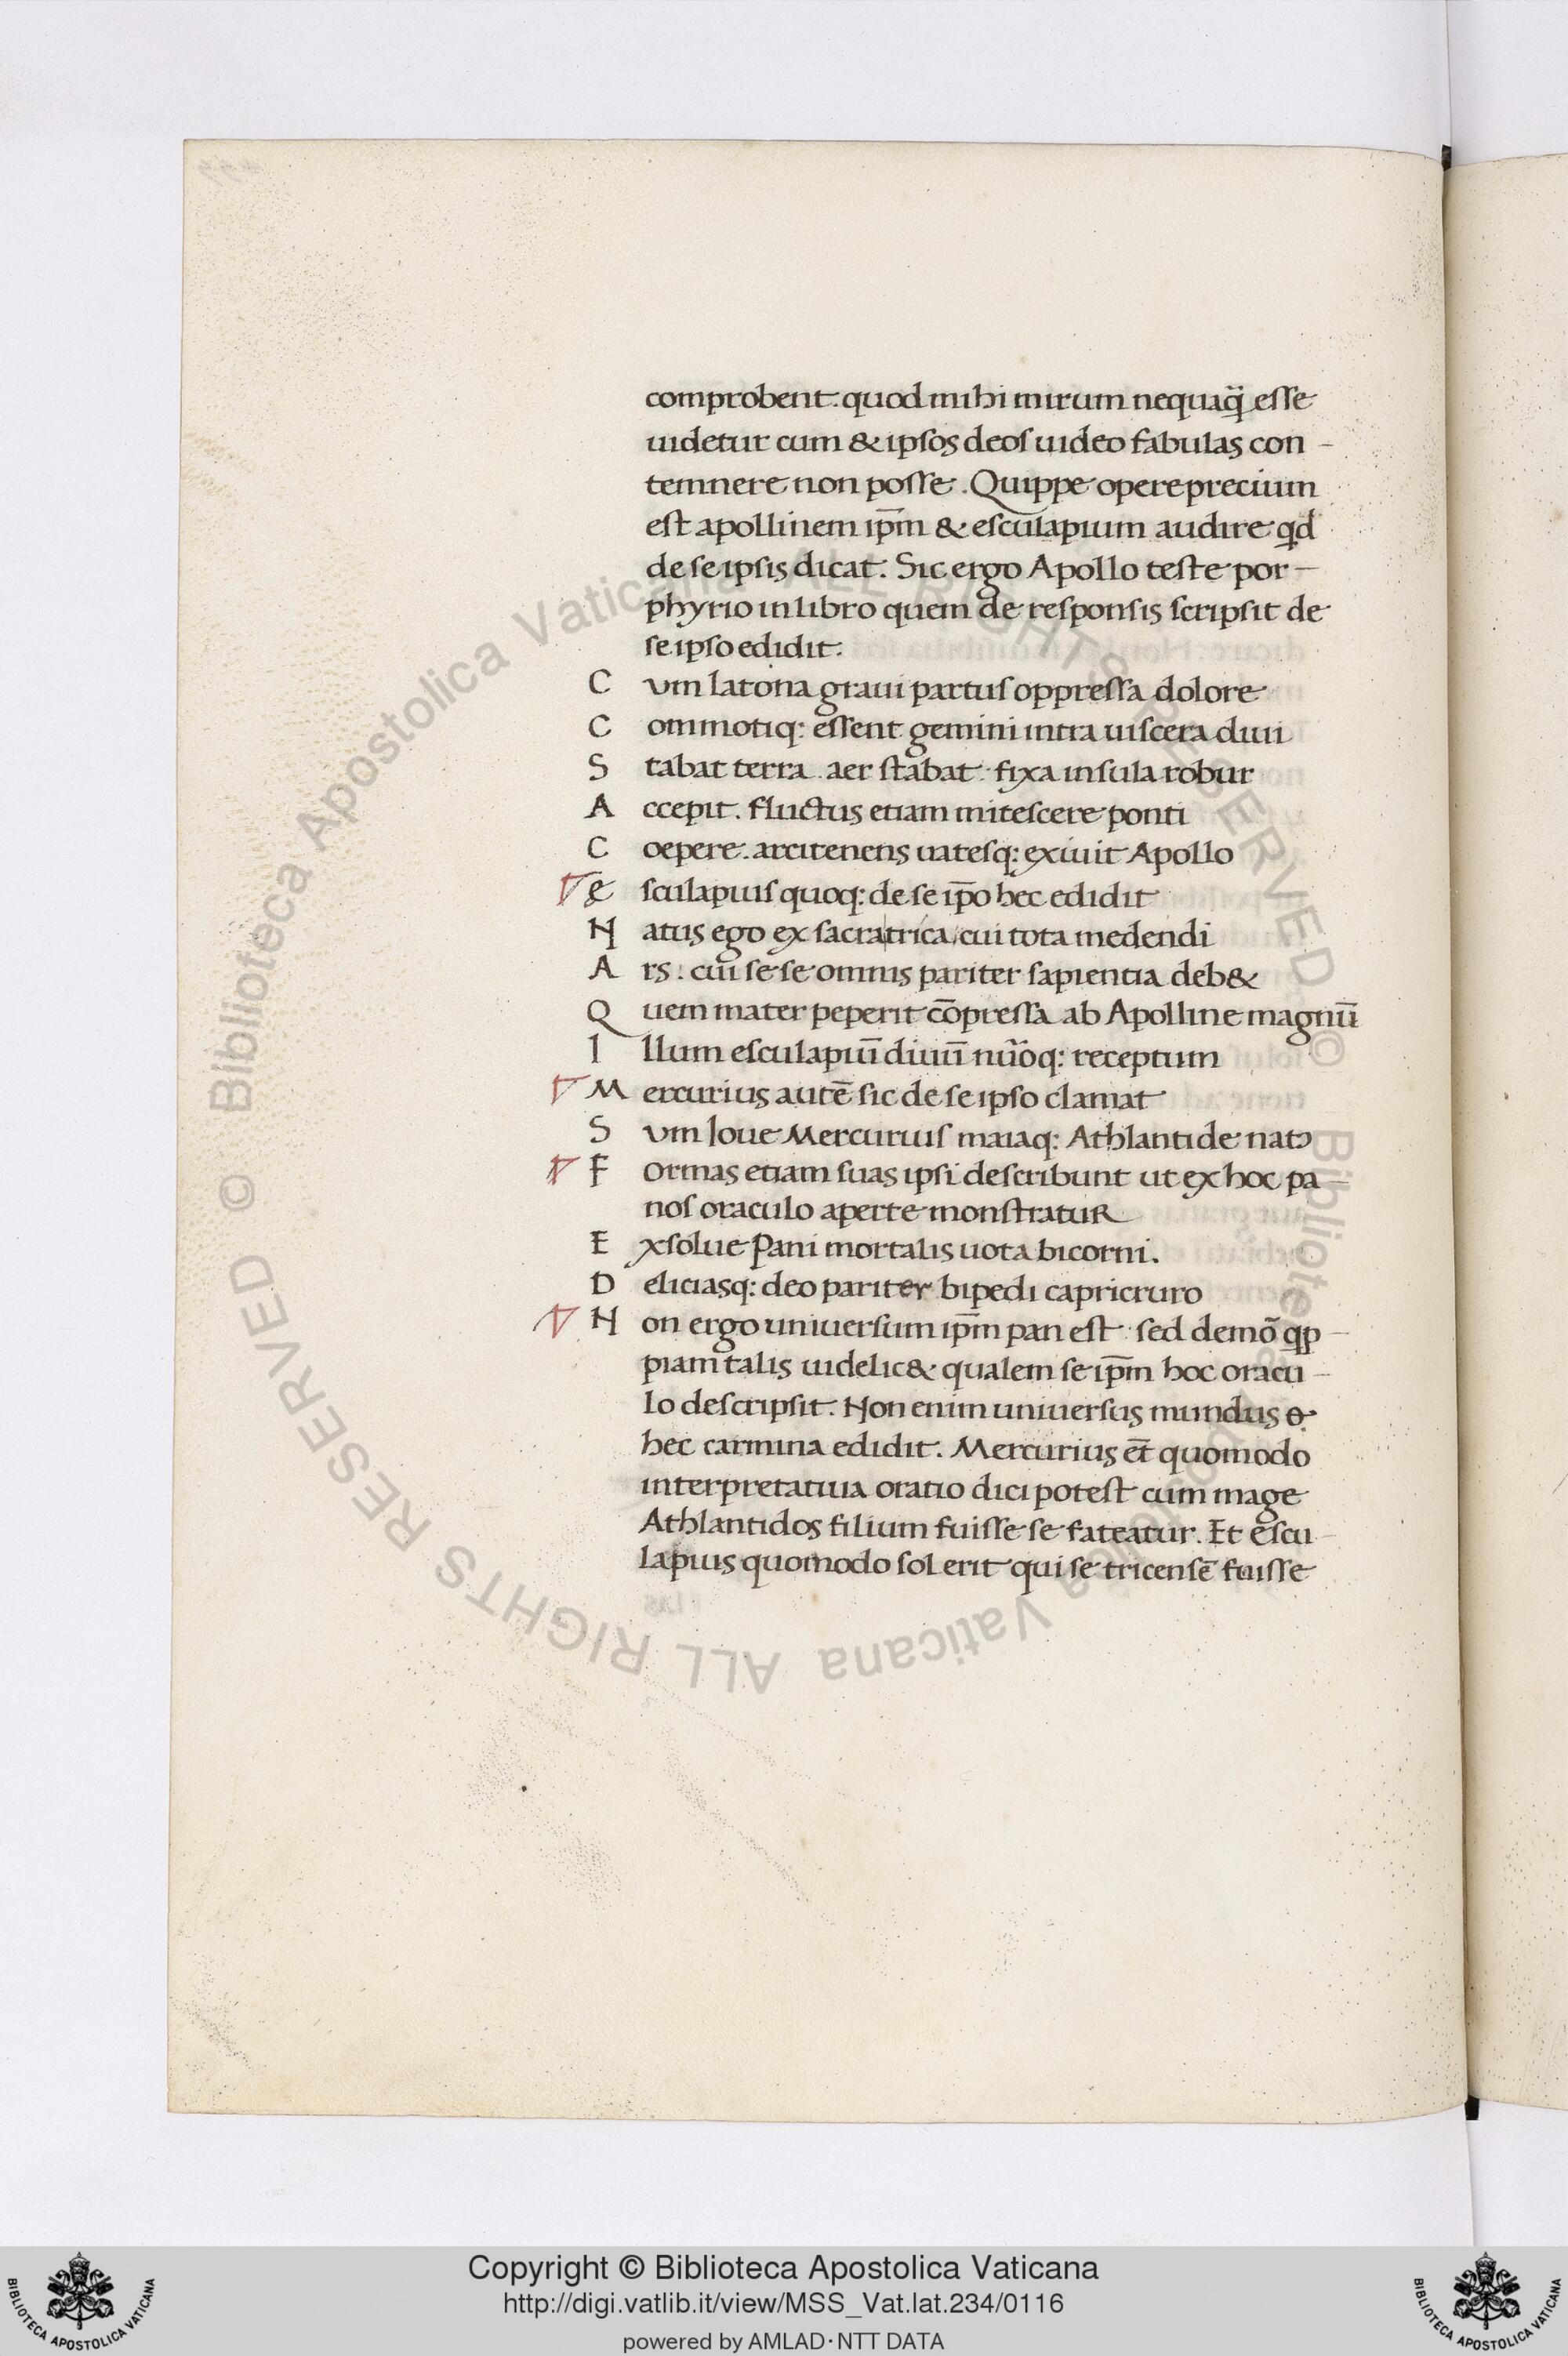 comprobent. quod mihi mirum nequaq̃ esse
uidetur cum & ipsos deos uideo fabulas con-
temnere non posse. Quippe opereprecium
est apollinem ip̄m & esculapium audire qd
de se ipsis dicat. Sic ergo Apollo teste por-
phyrio in libro quem de responsis scripsit de
se ipso edidit.
Cum latona graui partus oppressa dolore
Commotiq: essent gemini intra uiscera diui
Stabat terra. aer stabat. fixa insula robur
Accepit. fluctus etiam mitescere ponti
Coepere. arcitenens uatesq: exiuit Apollo
Esculapius quoq: de se ip̄o hec edidit
Natus ego ex sacra trica, cui tota medendi
Ars. cui sese omnis pariter sapientia deb&
Quem mater peperit cōpressa ab Apolline magnū
Illum esculapiū diuū nūoq: receptum
Mercurius autē sic de se ipso clamat
Sum Ioue Mercurius maiaq: Athlantide nato
Formas etiam suas ipsi describunt ut ex hoc pa-
nos oraculo aperte monstratur
Exsolue Pani mortalis uota bicorni.
Deliciasq: deo pariter bipedi capricruro
Non ergo uniuersum ip̄m pan est. sed demō qp-
piam talis uidelic& qualem se ip̄m hoc oracu-
lo descripsit. Non enim uniuersus mundus
hec carmina edidit. Mercurius et̄ quomodo
interpretatiua oratio dici potest cum mage
Athlantidos filium fuisse se fateatur. Et escu-
lapius quomodo sol erit qui se tricensē fuisse
© Biblioteca Apostolica Vaticana ALL RIGHTS RESERVED
© Biblioteca Apostolica Vaticana ALL RIGHTS RESERVED
Copyright © Biblioteca Apostolica Vaticana
http://digi.vatlib.it/view/MSS_Vat.lat.234/0116
powered by AMLAD·NTT DATA
BIBLIOTECA APOSTOLICA VATICANA
BIBLIOTECA APOSTOLICA VATICANA